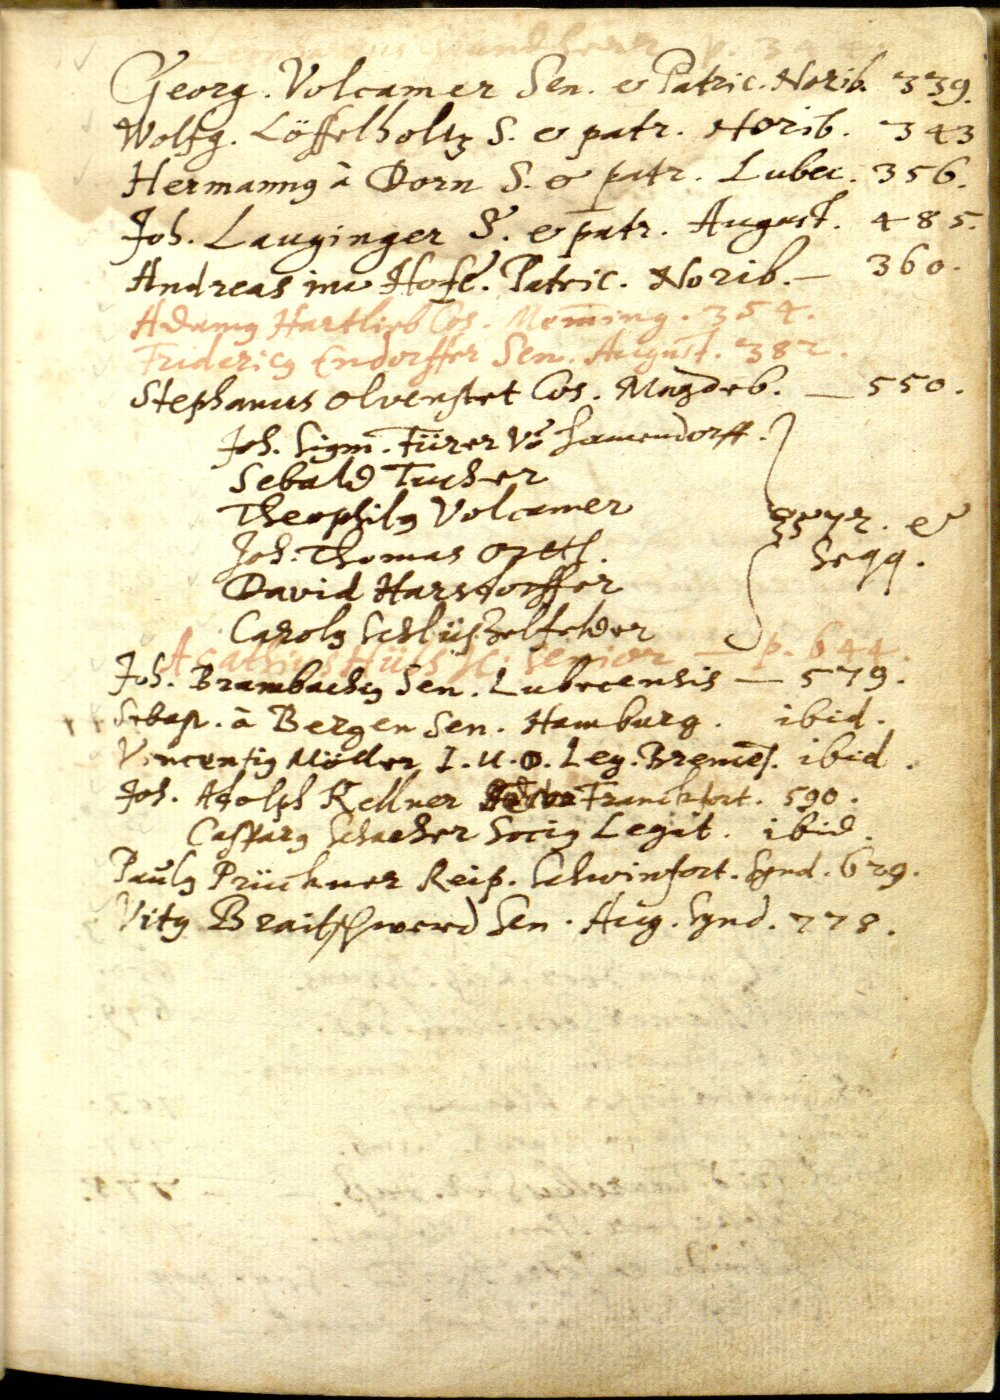 Georg. Volcamer Sen. & Patric. Norib. 339.
Wolfg. Löffelholtz S. & patr. Norib. 343
Hermannꝯ à Dorn S. & patr. Lubec. 356.
Joh. Lauginger S. & patr. August. 485.
Andreas im Hofe. Patric. Norib. — 360.
Adamꝯ Hartlieb Cos. Meming. 354.
Fridericꝯ Endorffer Sen. August. 382.
Stephanus Olvenstet Cos. Magdeb. — 550.
Joh. Sigm. Fürer Vō Haimendorff.
Sebald Tucher
Theophilꝯ Volcamer
572. &
Joh. Thomas
seqq.
David Harsdorffer
Carolꝯ Schlüszelfelder
senior — p. 644.
Joh. Brambachꝯ Sen. Lubecensis — 579.
Sebast. à Bergen Sen. Hamburg. ibid.
Vincentiꝯ Möller I. U. D. Leg. Bremēs. ibid.
Joh. Adolph Kellner Franckfort. 590.
Casparꝯ Schacher Sociꝯ Legat. ibid.
Paulꝯ Prückner Reip. Schwinfort. Synd. 629.
Vitꝯ Braitschwerd Sen. Aug. Synd. 778.